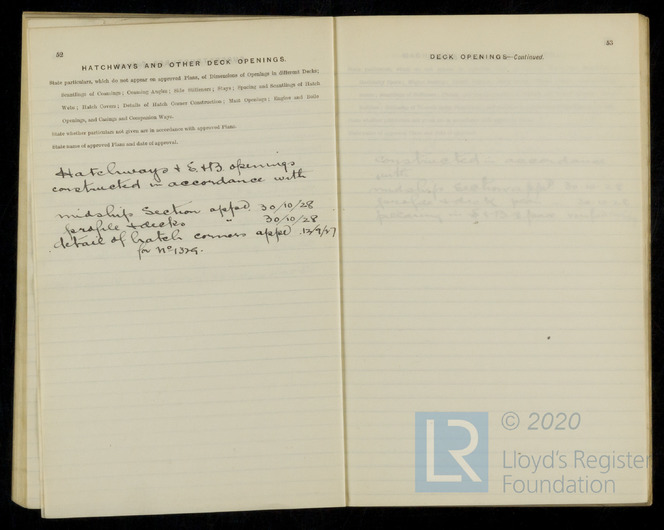 52
HATCHWAYS AND OTHER DECK OPENINGS.
State particulars, which do not appear on approved Plans, of Dimensions of Openings in different Decks;
Scantlings of Coamings; Coaming Angles; Side Stiffeners; Stays; Spacing and Scantlings of Hatch
Webs; Hatch Covers; Details of Hatch Corner Construction; Mast Openings; Engine and Boiler
Openings, and Casings and Companion Ways.
State whether particulars not given are in accordance with approved Plans.
State name of approved Plan and date of approval.
Hatchways & E. & B. openings
constructed in accordance with
midship Section appd 30/10/28
profile & decks " 30/10/28
detail of hatch corners appd 12/9/27
for No 1329.
53
DECK OPENINGS—Continued.
constructed in accordance
with
midship Section appd 30 10 28
LR
© 2020
Lloyd's Register
Foundation